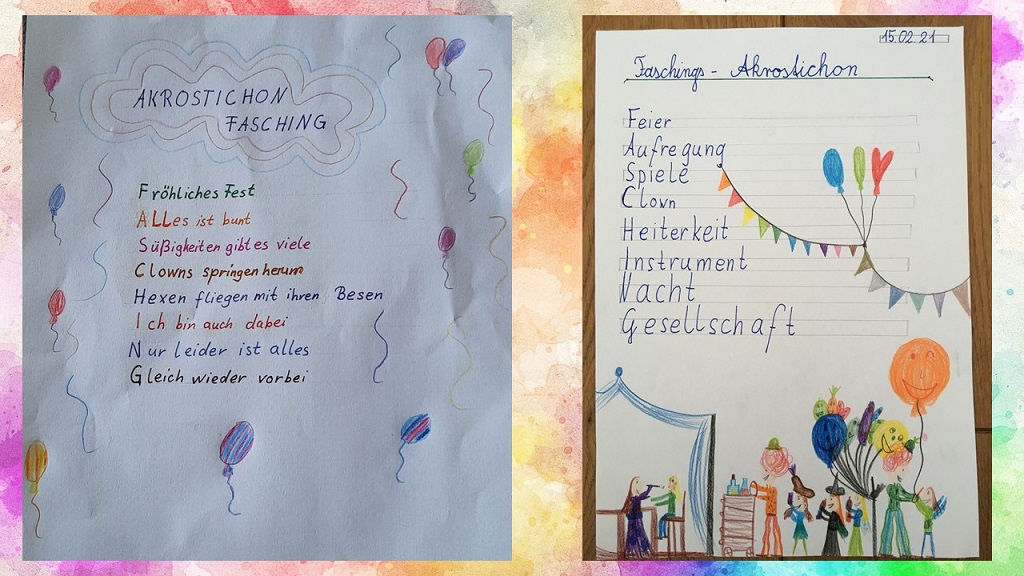 AKROSTICHON
FASCHING
Fröhliches Fest
ALLes ist bunt
Süßigkeiten gibt es viele
Clowns springen herum
Hexen fliegen mit ihren Besen
Ich bin auch dabei
Nur leider ist alles
Gleich wieder vorbei
15.02.21
Faschings - Akrostichon
Feier
Aufregung
Spiele
Clown
Heiterkeit
Instrument
Nacht
Gesellschaft